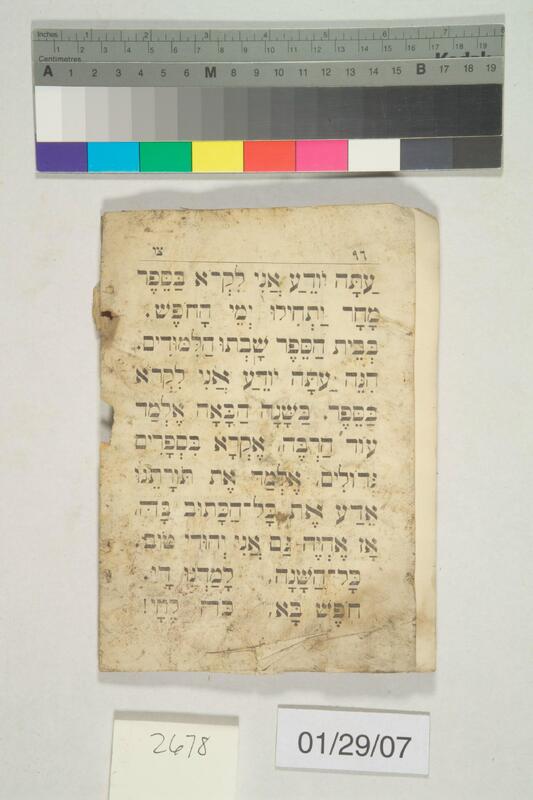 Inches 1 2 3 4 5 6 7 8
1 2 3 4 5 6 7 8 9 10 11 12 13 14 15 16 17 18 19
Centimetres
A 1 2 3 4 5 6 M 8 9 10 11 12 13 14 15 B 17 18 19
٩٦ צו
עַתָּה יוֹדֵעַ אֲנִי לִקְרֹא בַּסֵּפֶר
מָחָר יַתְחִילוּ יְמֵי הַחֹפֶשׁ.
בְּבֵית הַסֵּפֶר שָׁבְתוּ הַלִּמּוּדִים.
הִנֵּה עַתָּה יוֹדֵעַ אֲנִי לִקְרֹא
בַּסֵּפֶר. בַּשָּׁנָה הַבָּאָה אֶלְמַד
עוֹד הַרְבֵּה. אֶקְרָא בִּסְפָרִים
גְּדוֹלִים. אֶלְמַד אֶת תּוֹרָתֵנוּ
אֵדַע אֶת כָּל־הַכָּתוּב בָּהּ.
אָז אֶהְיֶה גַּם אֲנִי יְהוּדִי טוֹב.
כָּל־הַשָּׁנָה. לָמַדְנוּ דָי.
חֹפֶשׁ בָּא,
2678
01/29/07